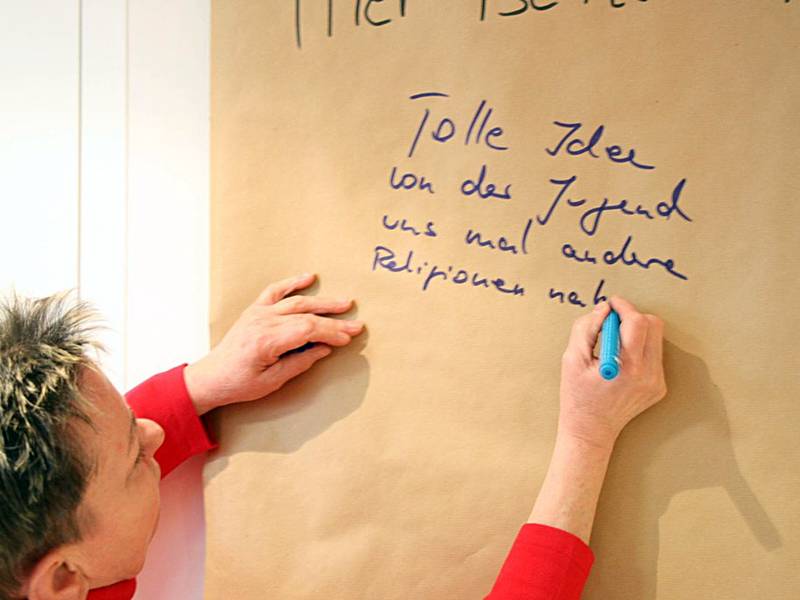 Hier
Tolle Idee
von der Jugend
uns mal andere
Religionen nah